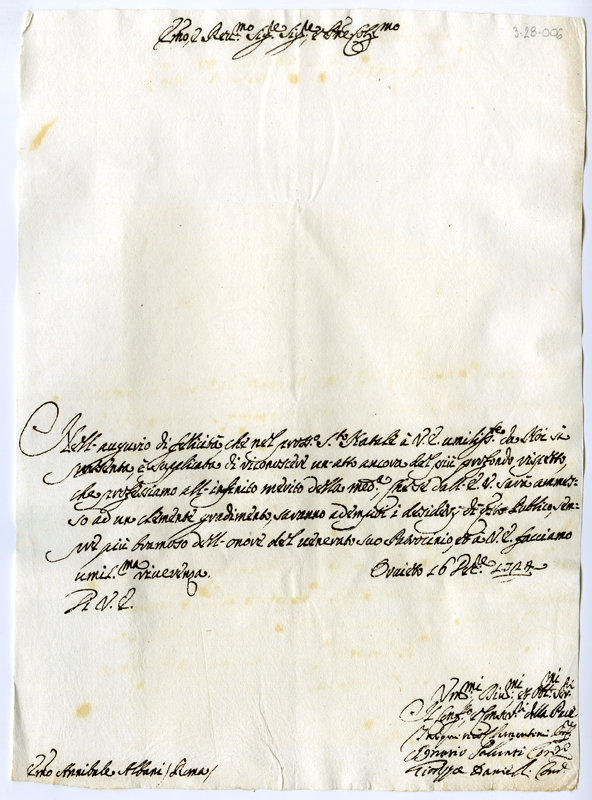 Emo e Reumo Sigre Sigre e Pne Colmo
3-28-006
Nell-augurio di felicità che nel prosso Sto Natale à V.E. umilisste da Noi si
presenta è supplicata di riconoscere un-atto ancora del più profondo rispetto,
che professiamo all-infinito merito della medma, che se dall-E.V. sarà ammes-
so ad un clemente gradimento, saranno adempiti i desiderj di qto Publico sem-
pre più bramoso dell-onore del venerato suo Patrocinio, et à V.E. facciamo
umilma riverenza. Orvieto 16 Dbre 1724
Di V.E.
Umi Divmi et Obmi Servi
Conservri della Pace
Ignatio Conre
Giuseppe Danieli Conre
Emo Annibale Albani / Roma /